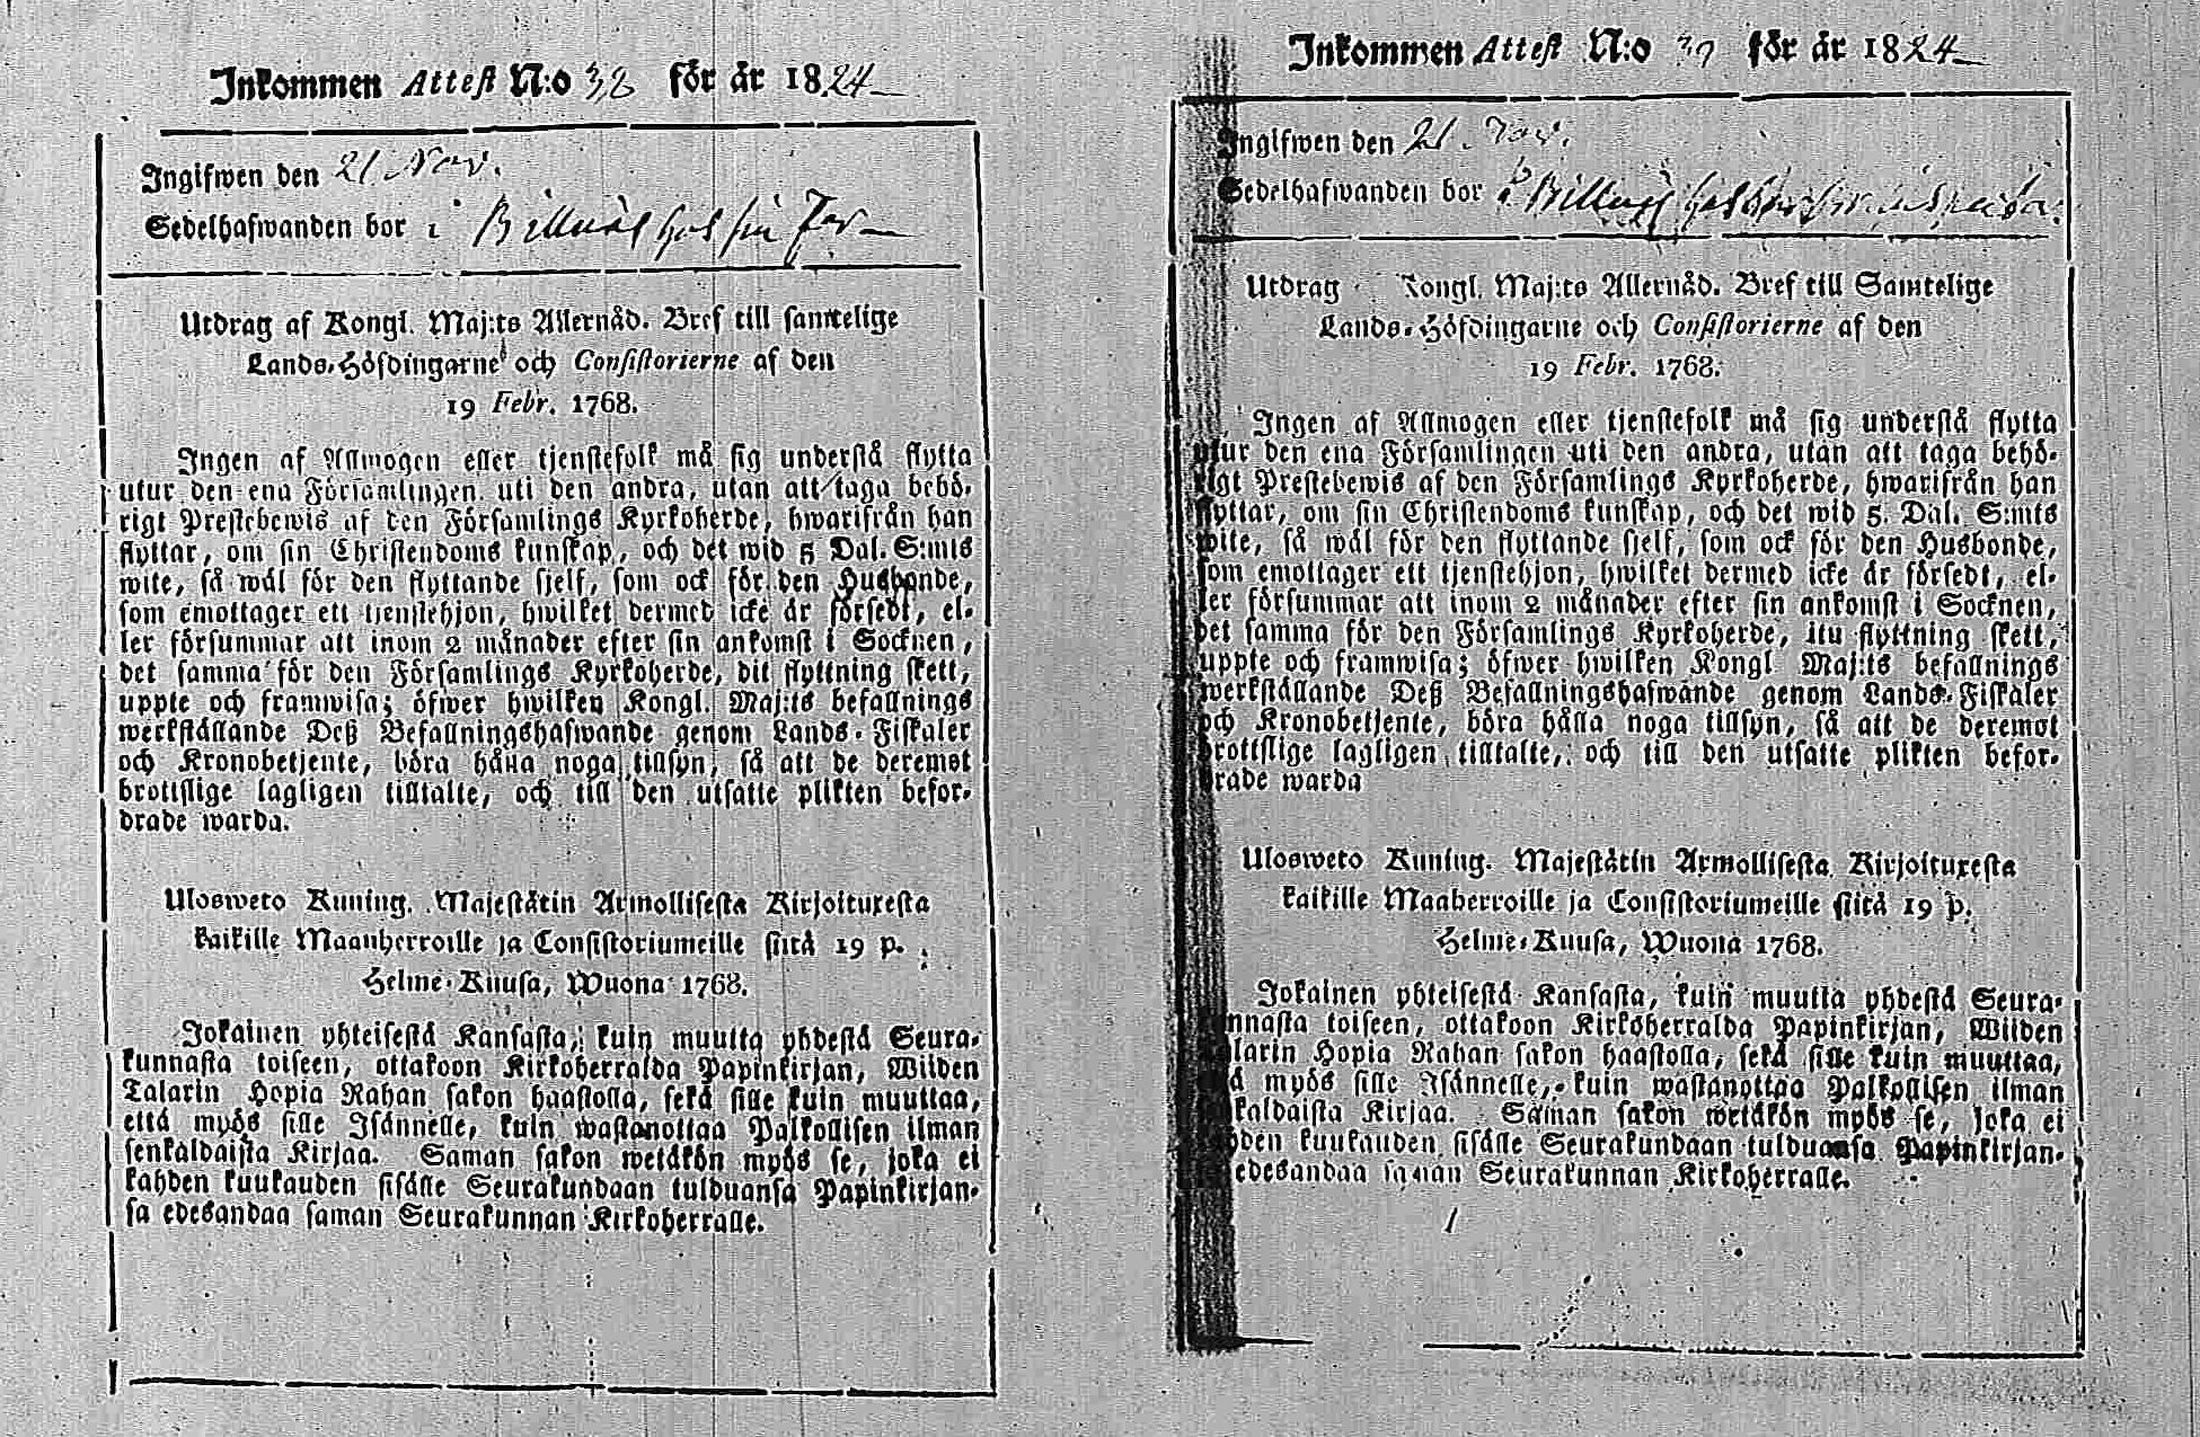 Inkommen Attest N:o 38 för år 1824
Ingifwen den 21 Nov.
Sedelhafwanden bor i Billnäs hos sin
Utdrag af Kongl. Maj:ts Allernåd. Bref till samtelige
Lands-Höfdingarne och Consistorierne af den
19 Febr. 1768.
Ingen af Allmogen eller tjenstefolk må sig understå flytta
utur den ena Församlingen uti den andra, utan att taga behö-
rigt Prestebewis af den Församlings Kyrkoherde, hwarifrån han
flyttar, om sin Christendoms kunskap, och det wid 5 Dal. S:mts
wite, så wäl för den flyttande sjelf, som ock för den Husbonde,
som emottager ett tjenstehjon, hwilket dermed icke är försedt, el-
ler försummar att inom 2 månader efter sin ankomst i Socknen,
det samma för den Församlings Kyrkoherde, dit flyttning skett,
uppte och framwisa; öfwer hwilken Kongl. Maj:ts befallnings
werkställande Deß Befallningshafwande genom Lands-Fiskaler
och Kronobetjente, böra hålla noga tillsyn, så att de deremot
brottslige lagligen tilltalte, och till den utsatte plikten befor-
drade warda.
Ulosweto Kuning. Majestätin Armollisesta Kirjoituxesta
kaikille Maanherroille ja Consistoriumeille siitä 19 p.
Helme-Kuusa, Wuona 1768.
Jokainen yhteisestä Kansasta, kuin muutta yhdestä Seura-
kunnasta toiseen, ottakoon Kirkoherralda Papinkirjan, Wiiden
Talarin Hopia Rahan sakon haastolla, sekä sille kuin muuttaa,
että myös sille Isännelle, kuin wastanottaa Palkollisen ilman
senkaldaista Kirjaa. Saman sakon wetäkön myös se, joka ei
kahden kuukauden sisälle Seurakundaan tulduansa Papinkirjan-
sa edesandaa saman Seurakunnan Kirkoherralle.
Inkommen Attest N:o 39 för år 1824
Ingifwen den 21. Nov.
Sedelhafwanden bor i Billnäs hos
Utdrag Kongl. Maj:ts Allernåd. Bref till Samtelige
Lands-Höfdingarne och Consistorierne af den
19 Febr. 1768.
Ingen af Allmogen eller tjenstefolk må sig understå flytta
utur den ena Församlingen uti den andra, utan att taga behö-
rigt Prestebewis af den Församlings Kyrkoherde, hwarifrån han
flyttar, om sin Christendoms kunskap, och det wid 5. Dal. S:mts
wite, så wäl för den flyttande sjelf, som ock för den Husbonde,
som emottager ett tjenstehjon, hwilket dermed icke är försedt, el-
ler försummar att inom 2 månader efter sin ankomst i Socknen,
det samma för den Församlings Kyrkoherde, itu flyttning skett,
uppte och framwisa; öfwer hwilken Kongl Maj:ts befallnings
werkställande Deß Befallningshafwande genom Lands-Fiskaler
och Kronobetjente, böra hålla noga tillsyn, så att de deremot
brottslige lagligen tilltalte, och till den utsatte plikten befor-
drade warda
Ulosweto Kuning. Majestätin Armollisesta Kirjoituxesta
kaikille Maaherroille ja Consistoriumeille siitä 19 p.
Helme-Kuusa, Wuona 1768.
Jokainen yhteisestä Kansasta, kuin muutta yhdestä Seura-
nnasta toiseen, ottakoon Kirkoherralda Papinkirjan, Wiiden
larin Hopia Rahan sakon haastolla, sekä sille kuin muuttaa,
ä myös sille Isännelle, kuin wastanottaa Palkollisen ilman
kaldaista Kirjaa. Saman sakon wetäkön myös se, joka ei
hden kuukauden sisälle Seurakundaan tulduansa Papinkirjan-
edesandaa saman Seurakunnan Kirkoherralle.